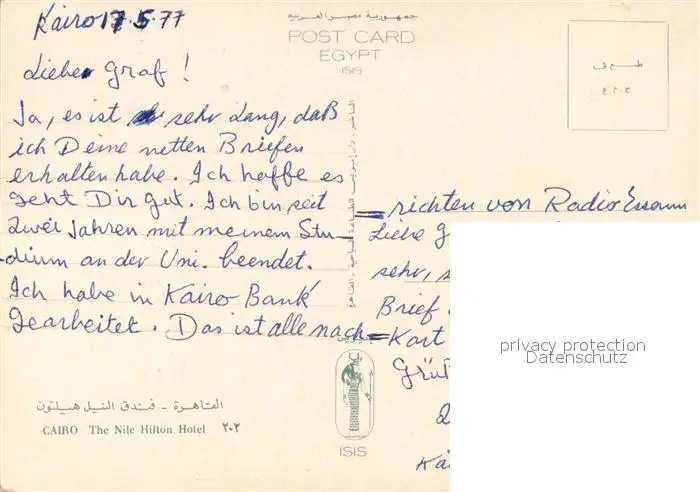 Kairo 17.5.77
Lieber Graf !
Ja, es ist sehr Lang, daß
ich Deine netten Briefen
erhalten habe. Ich hoffe es
geht Dir gut. Ich bin seit
zwei Jahren mit meinem Stu-
dium an der Uni. beendet.
Ich habe in Kairo Bank
gearbeitet. Das ist alle nach=
القاهرة - فندق النيل هيلتون
CAIRO The Nile Hilton Hotel ٢٠٢
جمهورية مصر العربية
POST CARD
EGYPT
ISIS
طـــع فى
ج.م.ع
=richten von Radio Essam
Liebe G
sehr, s
Brief
Kart
Grüß
Kai
ISIS
privacy protection
Datenschutz